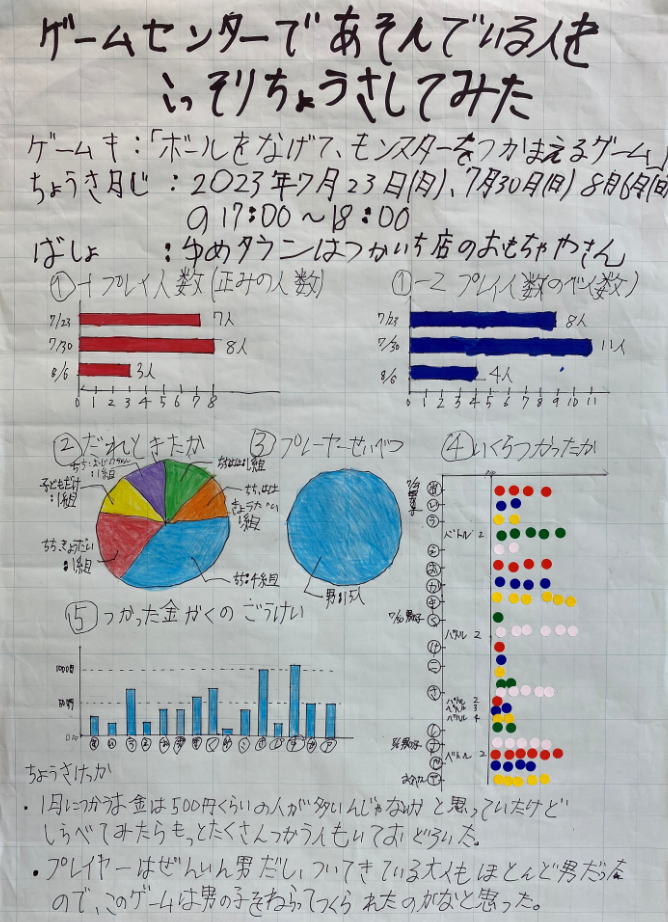 ゲームセンターであそんでいる人を
こっそりちょうさしてみた
ゲームキ:「ボールをなげて、モンスターをつかまえるゲーム」
ちょうさ月じ:2023年7月23日(月)、7月30日(月) 8月6日(日
の17:00〜18:00
ばしょ:ゆめタウンはつかいち店のおもちゃやさん
①-1 プレイ人数(正みの人数)
7/23 7人
7/30 8人
8/6 3人
0 1 2 3 4 5 6 7 8
①-2 プレイ人数の
7/23 8人
7/30 11人
8/6 4人
0 1 2 3 4 5 6 7 8 9 10 11
②だれときたか
:1組
子どもだけ
:1組
ちち、きょうだい
:1組
きょうだい
1組
ちち:4組
③プレーヤーせいべつ
男:15人
④いくらつかったか
バトル 2
7/30 男の子
バトル 2
バトル 2
バトル 3
バトル 4
8/6 男の子
バトル 2
⑤つかった金がくのごうけい
1000円
500円
ちょうさけっか
・1日につかうお金は500円くらいの人が多いんじゃないかと思っていたけど
しらべてみたらもっとたくさんつかう人もいておどろいた。
・プレイヤーはぜんいん男だし、ついてきている大人もほとんど男だった
ので、このゲームは男の子をねらってつくられたのかなと思った。